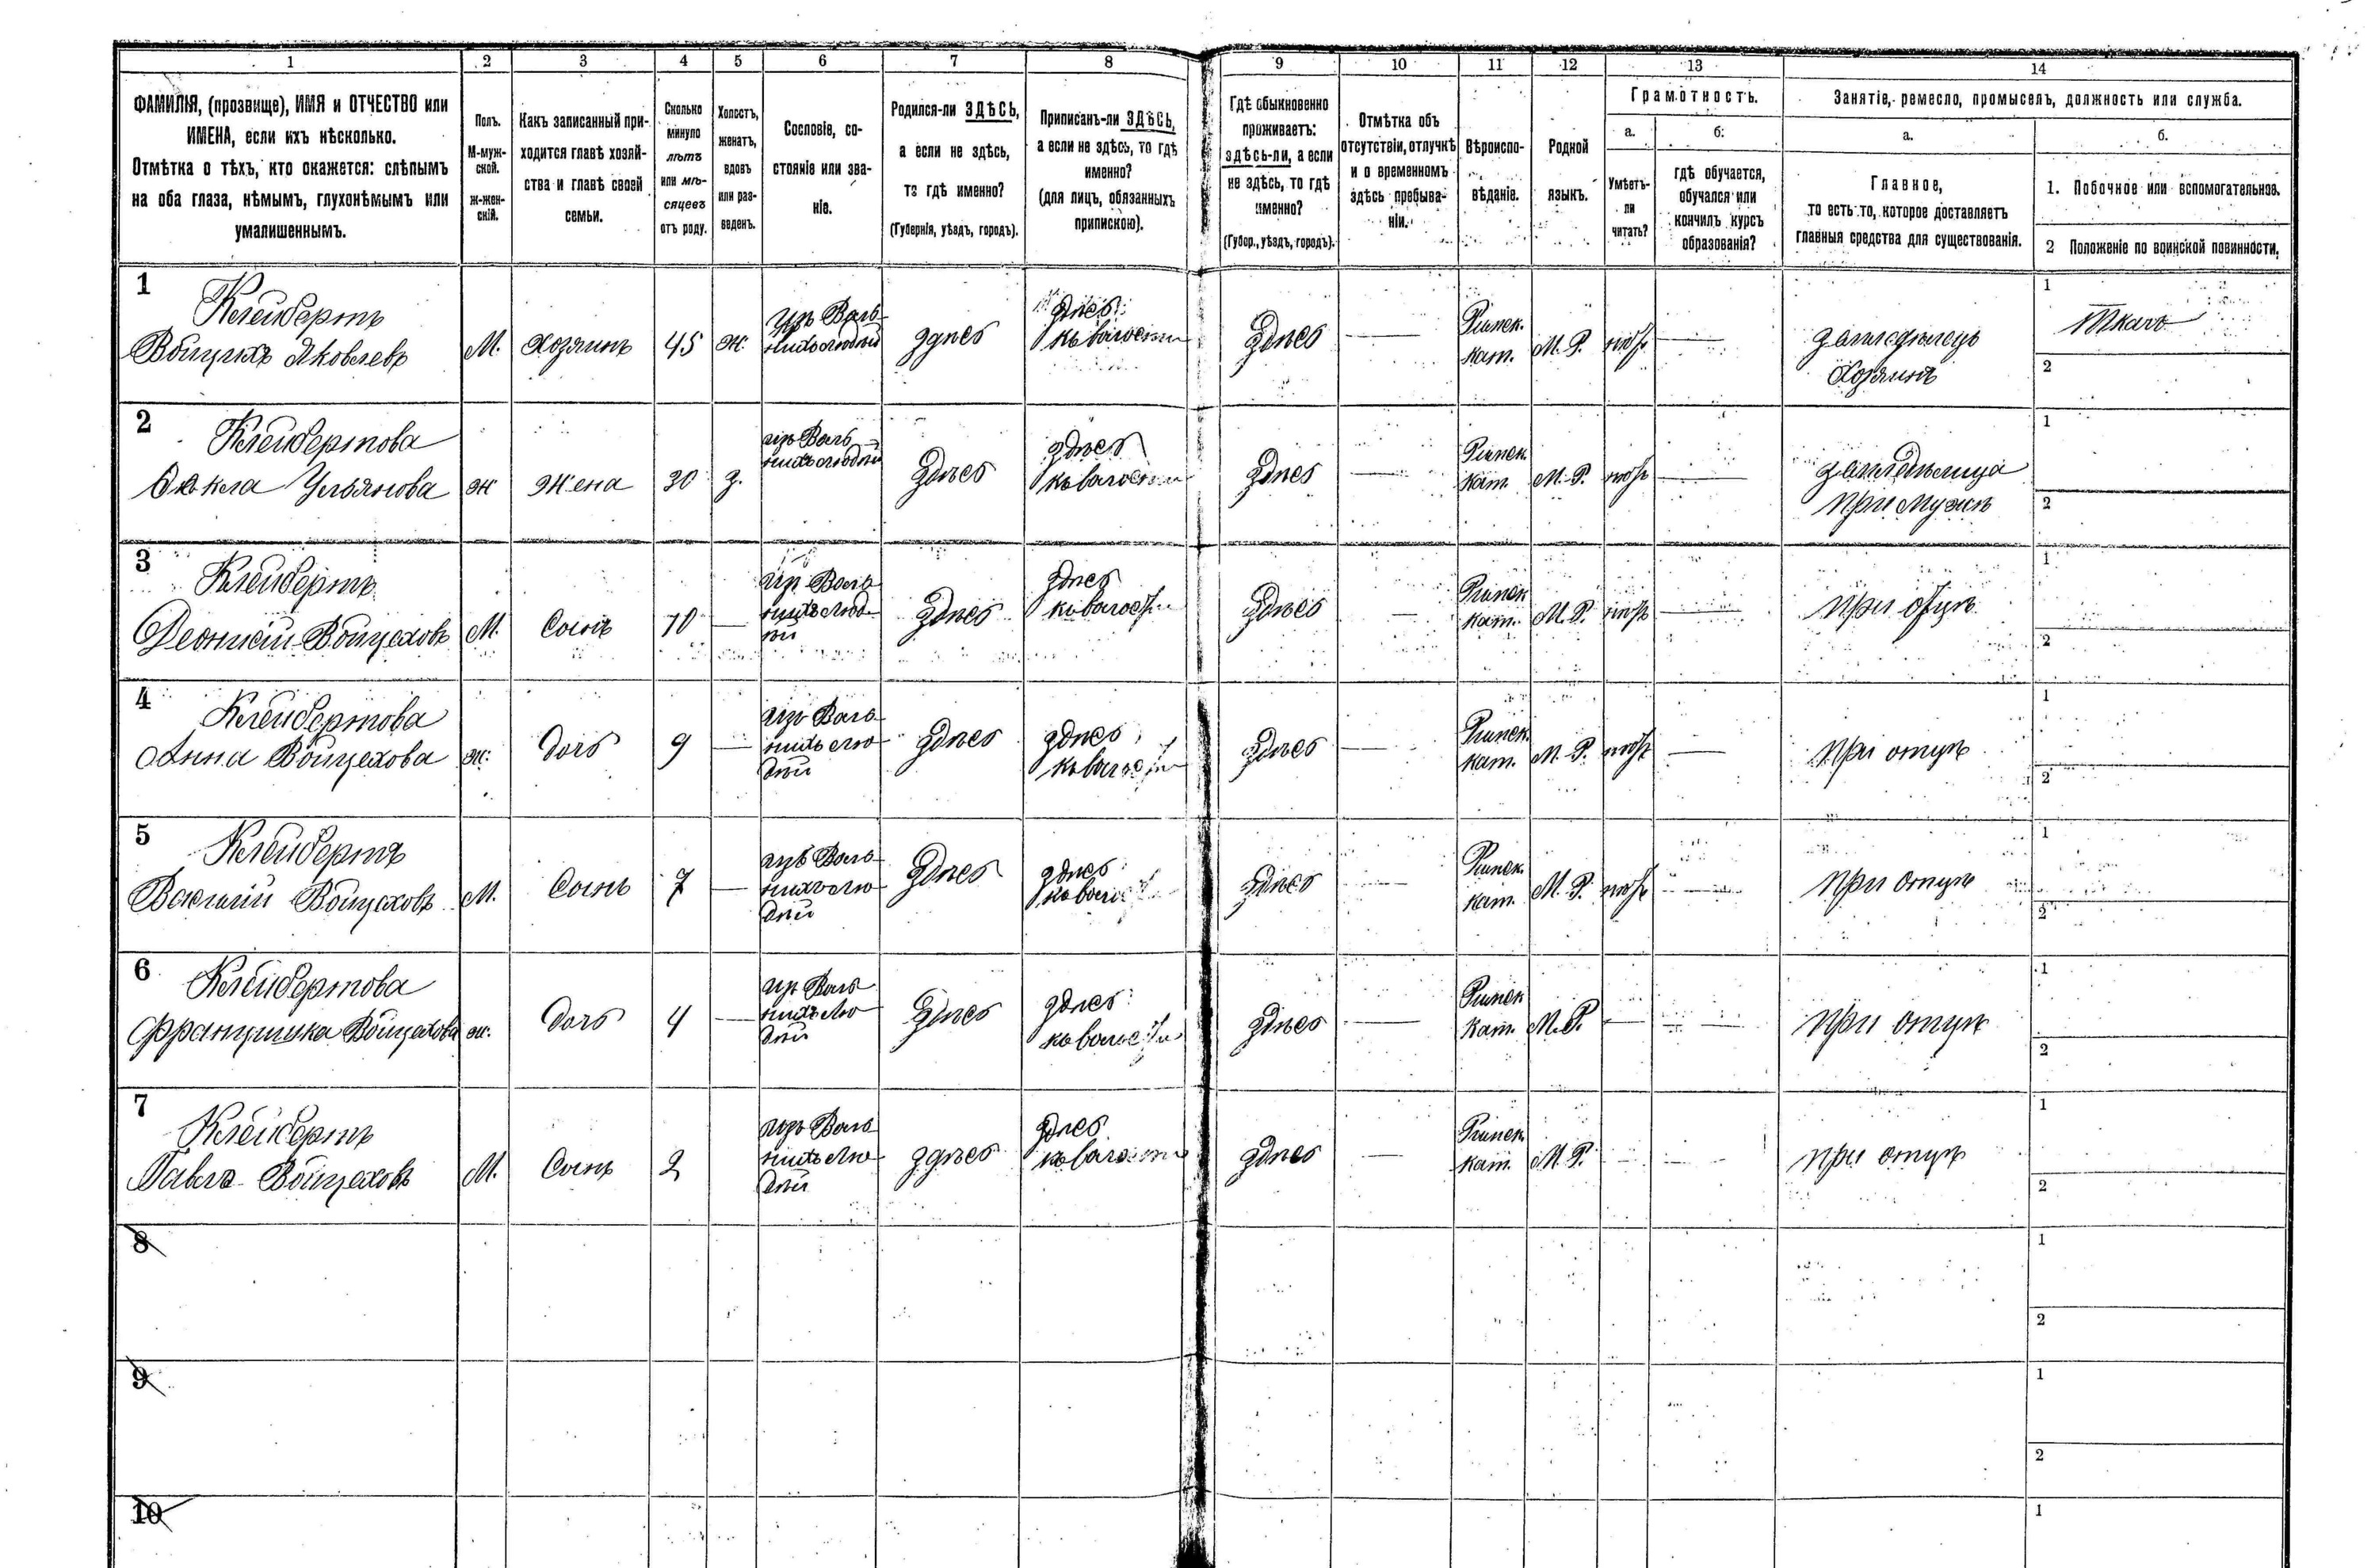 1 2 3 4 5 6 7 8 9 10 11 12 13 14
ФАМИЛІЯ, (прозвище), ИМЯ и ОТЧЕСТВО или
ИМЕНА, если ихъ нѣсколько.
Отмѣтка о тѣхъ, кто окажется: слѣпымъ
на оба глаза, нѣмымъ, глухонѣмымъ или
умалишеннымъ.
Полъ.
М-муж-
ской.
ж-жен-
скій.
Какъ записанный при-
ходится главѣ хозяй-
ства и главѣ своей
семьи.
Сколько
минуло
лѣтъ
или мѣ-
сяцевъ
отъ роду.
Холостъ,
женатъ,
вдовъ
или раз-
веденъ.
Сословіе, со-
стояніе или зва-
ніе.
Родился-ли ЗДѢСЬ,
а если не здѣсь,
то гдѣ именно?
(Губернія, уѣздъ, городъ).
Приписанъ-ли ЗДѢСЬ,
а если не здѣсь, то гдѣ
именно?
(для лицъ, обязанныхъ
припискою).
Гдѣ обыкновенно
проживаетъ:
здѣсь-ли, а если
не здѣсь, то гдѣ
именно?
(Губер., уѣздъ, городъ).
Отмѣтка объ
отсутствіи, отлучкѣ
и о временномъ
здѣсь пребыва-
ніи.
Вѣроиспо-
вѣданіе.
Родной
языкъ.
Грамотность.
а.
Умѣетъ-
ли
читать?
б.
гдѣ обучается,
обучался или
кончилъ курсъ
образованія?
Занятіе, ремесло, промыселъ, должность или служба.
а.
Главное,
то есть то, которое доставляетъ
главныя средства для существованія.
б.
1. Побочное или вспомогательное.
2 Положеніе по воинской повинности.
1
Клейбертъ
Войцехъ Яковлевъ
М.
Хозяинъ
45
ж.
изъ Воль
ныхъ людей
здѣсь
здѣсь
здѣсь
Римск.
кат.
М. Р.
нѣтъ
земледѣлецъ
Хозяинъ
1
Ткачъ
2
2
Клейбертова
Ульянова
ж
жена
30
з.
изъ Воль
ныхъ людей
здѣсь
здѣсь
здѣсь
Римск
кат.
М. Р.
нѣтъ
при мужѣ
1
2
3
Клейбертъ
Войцеховъ
М.
Сынъ
10
изъ Воль
ныхъ люд
ей
здѣсь
здѣсь
здѣсь
Римск
кат.
М. Р.
нѣтъ
при отцѣ
1
2
4
Клейбертова
Анна Войцехова
ж.
дочь
9
изъ Воль
ныхъ лю
дей
здѣсь
здѣсь
здѣсь
Римск.
кат.
М. Р.
нѣтъ
при отцѣ
1
2
5
Клейбертъ
Василій Войцеховъ
М.
Сынъ
7
изъ Воль
ныхъ лю
дей
здѣсь
здѣсь
здѣсь
Римск.
кат.
М. Р.
нѣтъ
при отцѣ
1
2
6
Клейбертова
Францишка Войцехова
ж.
дочь
4
изъ Воль
ныхъ лю
дей
здѣсь
здѣсь
здѣсь
Римск
кат.
М. Р.
при отцѣ
1
2
7
Клейбертъ
Павелъ Войцеховъ
М.
Сынъ
2
изъ Воль
ныхъ лю
дей
здѣсь
здѣсь
здѣсь
Римск
кат.
М. Р.
при отцѣ
1
2
8
1
2
9
1
2
10
1